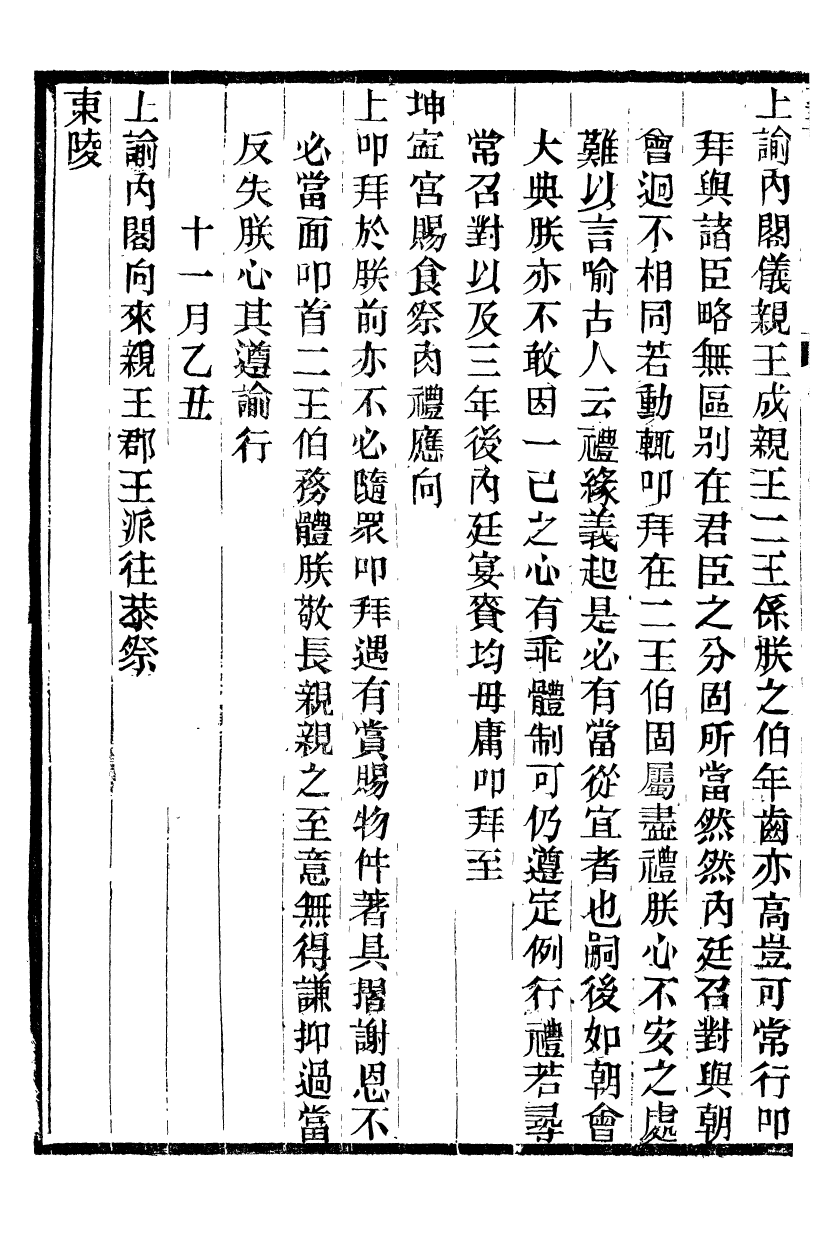 上諭內閣儀親王成親王二王係朕之伯年齒亦高豈可常行叩
拜與諸臣略無區别在君臣之分固所當然然內廷召對與朝
會迥不相同若動輒叩拜在二王伯固屬盡禮朕心不安之處
難以言喻古人云禮緣義起是必有當從宜者也嗣後如朝會
大典朕亦不敢因一己之心有乖體制可仍遵定例行禮若尋
常召對以及三年後內廷宴賚均毋庸叩拜至
坤寍宮賜食祭肉禮應向
上叩拜於朕前亦不必隨眾叩拜遇有賞賜物件著具摺謝恩不
必當面叩首二王伯務體朕敬長親親之至意無得謙抑過當
反失朕心其遵諭行
十一月乙丑
上諭內閣向來親王郡王派往恭祭
東陵